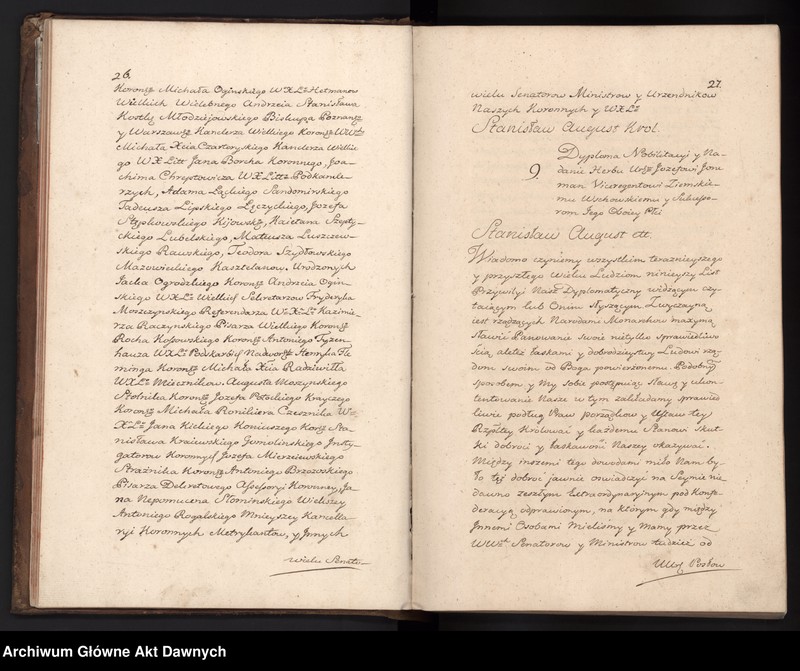 26.
Koronz Michała Oginskiego WXLt Hetmanow
Wielkich Wielebnego Andrzeia Stanisława
Kostki Młodzieiowskiego Biskupa Poznanz
y Warszawz Kanclerza Wielkiego Koronz
Michała Xcia Czartoryskiego Kanclerza Wielkie
go WXLitt Jana Borcha Koronnego, Joa-
chima Chreptowicza WXLitt Podkancle-
rzych, Adama Łąckiego Sandomirskiego
Tadeusza Lipskiego Łęczyckiego, Jozefa
Stępkowskiego Kijowskz, Kaietana
ckiego Lubelskiego, Mateusza Łuszczew-
skiego Rawskiego, Teodora Szydłowskiego
Mazowieckiego Kasztelanow. Urodzonych
Jacka Ogrodzkiego Koronz Andrzeia Ogin-
skiego WXLt Wielkich Sekretarzow Fryderyka
Moszczynskiego Referendarza Kazimie-
rza Raczynskiego Pisarza Wielkiego Koronz
Rocha Kossowskiego Koronz Antoniego Tyzen-
hauza WXLt Podskarbich Nadwornz Henryka Fle
minga Koronz Michała Xcia Radziwiłła
WXLt Miecznikow. Augusta Moszynskiego
Stolnika Koronz Jozefa Potockiego Krayczego
Koronz Michała Ronikiera Czesznika W
XLt Jana Kickiego Koniuszego Koronz Sta-
nisława Kraiewskiego Instyg-
gatorow Koronnych Jozefa Mierzeiewskiego
Strażnika Koronz Antoniego Brzozowskiego
Pisarza Dekretowego Assessoryi Koronney, Ja-
na Nepomucena Słominskiego Wiekszey
Antoniego Rogalskiego Mnieyszey Kancella-
ryi Koronnych Metrykantow, y Innych
wielu Senato-
27.
wielu Senatorow Ministrow y Urzendnikow
Naszych Koronnych y WXLt
Stanisław August Krol.
9. Dyploma Nobilitacyi y Na-
danie Herbu Urz Jozefowi
man Viceregentowi Ziemskie-
mu Wschowskiemu y Sukcesso-
rom Iego Oboiey Płci
Stanisław August ett.
Wiadomo czyniemy wszystkim teraznieyszego
y przyszłego Wieku Ludziom ninieyszy List
Przywiley Nasz Dyplomatyczny widzącym czy-
taiącym lub Onim słyszącym. Zwyczayną
iest rządzących Narodami Monarchow maxymą
sławić Panowanie swoie nietylko sprawiedliwo
ścią, aleteż łaskami y dobrodzieystwy Ludowi rzą-
dom swoim od Boga powierzonemu. Podobnym
sposobem y My sobie postępuiąc sławę y ukon-
tentowanie Nasze w tym zakładamy sprawied
liwie podług Praw porządkow y Ustaw tey
Rzpltey Krolować y każdemu Stanowi skut-
ki dobroci y łaskawości Naszey okazywać.
Między inszemi tego dowodami miło Nam by-
ło tęż dobroć iawnie oswiadczyć na Seymie nie
dawno zeszłym Extraordynaryinym pod Konfe-
deracyą odprawionym, na którym gdy między
Innemi Osobami Mieliśmy y Mamy przez
Senatorow y Ministrow tudzież od
Posłow
Archiwum Główne Akt Dawnych